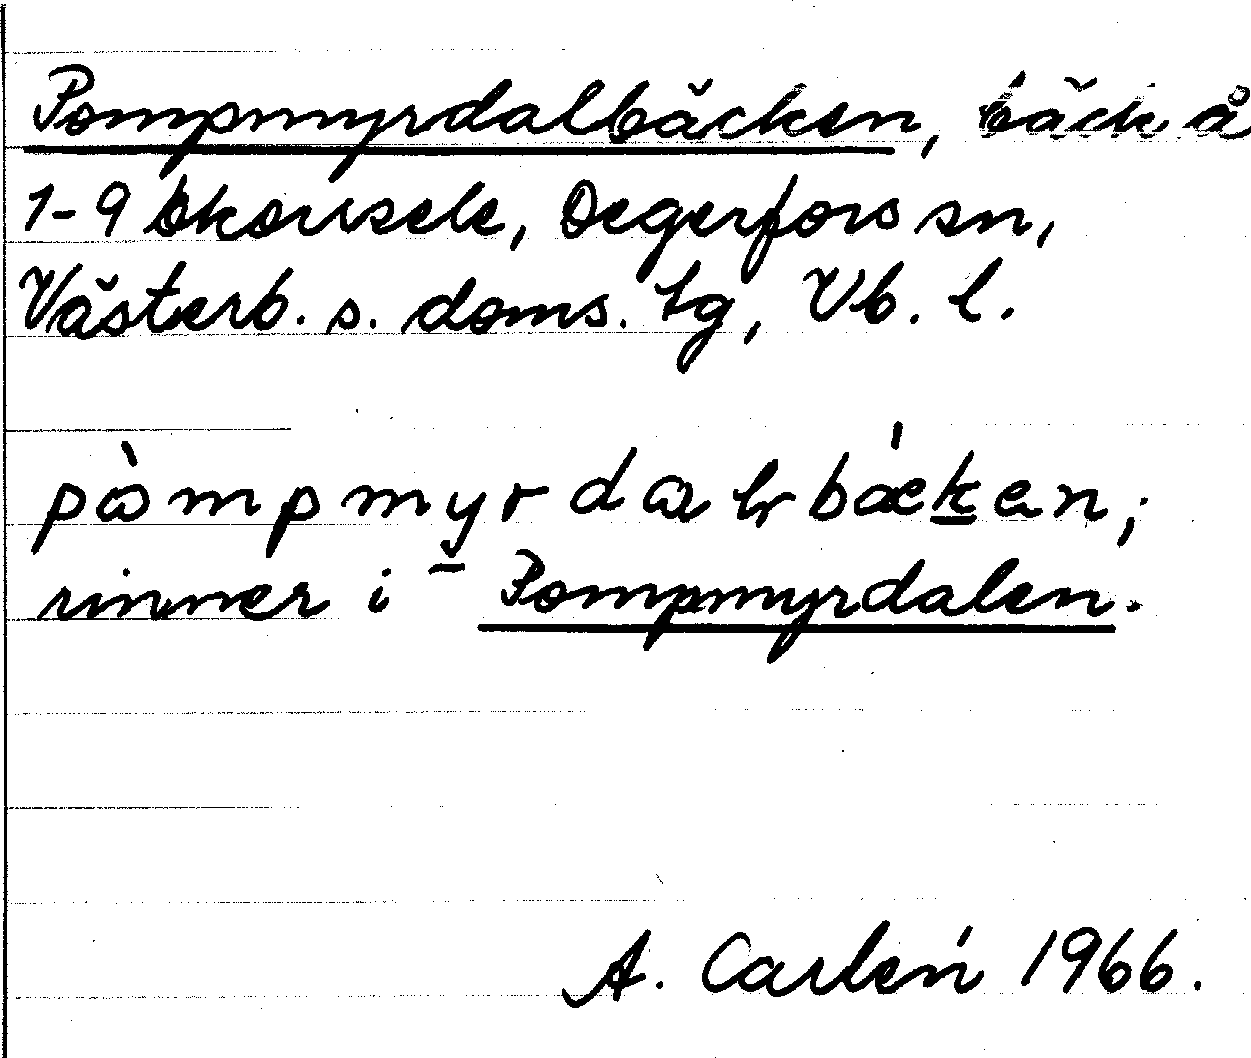 Pompmyrdalbäcken, bäck å
1-9 Skovsele, Degerfors sn,
Västerb. s. doms. tg, Vb. l.
pòmpmyrdalbǽken;
rinner i Pompmyrdalen.
A. Carlén 1966.